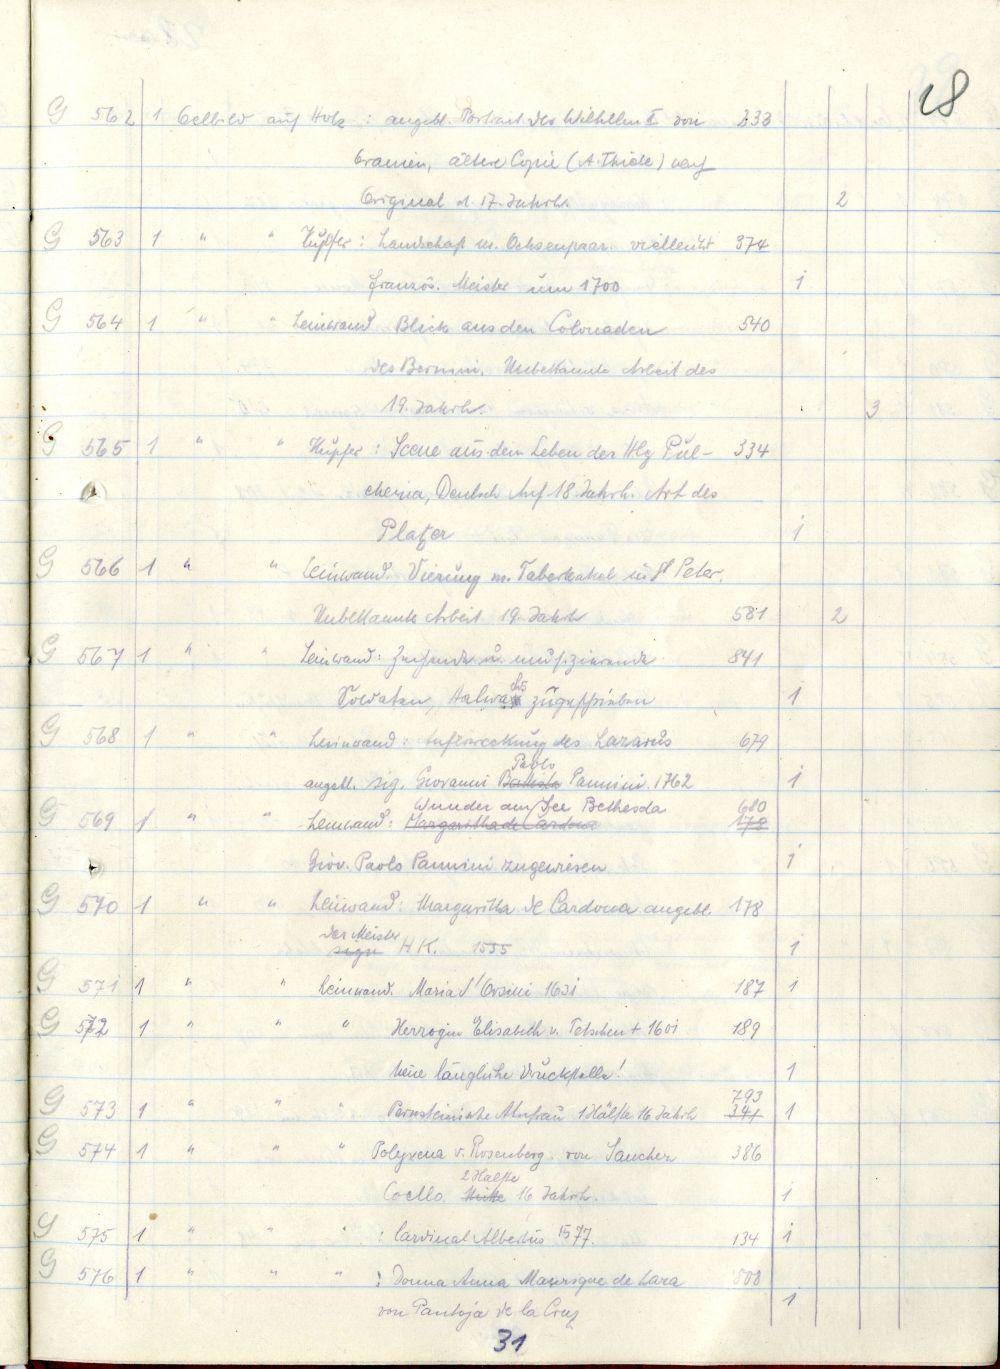 18
G 562 1 Oelbild auf Holz : angebl. Portrait des Wilhelm II von 333
Oranien, ältere Copie (A. Thiele) nach
Original d 17. Jahrh. 2
G 563 1 " " Kupfer : Landschaft m. Ochsenpaar. vielleicht 374
französ. Meister um 1700 1
G 564 1 " " Leinwand Blick aus den Colonaden 540
des Bernini. Unbekannte Arbeit des
19. Jahrh. 3
G 565 1 " " Kupfer : Scene aus dem Leben der Hlg Pul- 334
cheria, Deutsch Anf 18 Jahrh. Art des
Platzer 1
G 566 1 " " Leinwand. Vierung m. Tabernakel in St Peter.
Unbekannte Arbeit 19. Jahrh 581 2
G 567 1 " " Leinwand: Zechende u. musizierende 841
Soldaten, zugeschrieben 1
G 568 1 " " Leinwand: Auferweckung des Lazarus 679
Paolo
angebl. sig. Giovanni Battista Pannini. 1762 1
Wunder am See Bethesda 680
G 569 1 " " Leinwand: Margaritha de Cardona 178
Giov. Paolo Pannini zugewiesen 1
G 570 1 " " Leinwand: Margaritta de Cardona angebl. 178
der Meister
sign H. K. 1555 1
G 571 1 " " Leinwand. Maria d'Orsini 1631 187 1
G 572 1 " " " Herzogin Elisabeth v. Tetschen + 1601 189
kleine längliche Druckstelle! 1
793
G 573 1 " " " Pernsteinische Ahnfrau 1 Hälfte 16 Jahrh 341 1
G 574 1 " " " Polyxena v. Rosenberg. von Sanchez 386
2 Hälfte
Coello. Mitte 16 Jahrh. 1
G 575 1 " " " : Cardinal Albertus 1577. 134 1
G 576 1 " " " : Donna Anna Manrique de Lara 508
von Pantoja de la Cruz 1
31